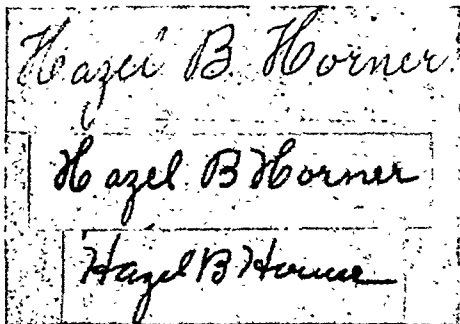 Hazel B. Horner.
Hazel B Horner
Hazel B Horner